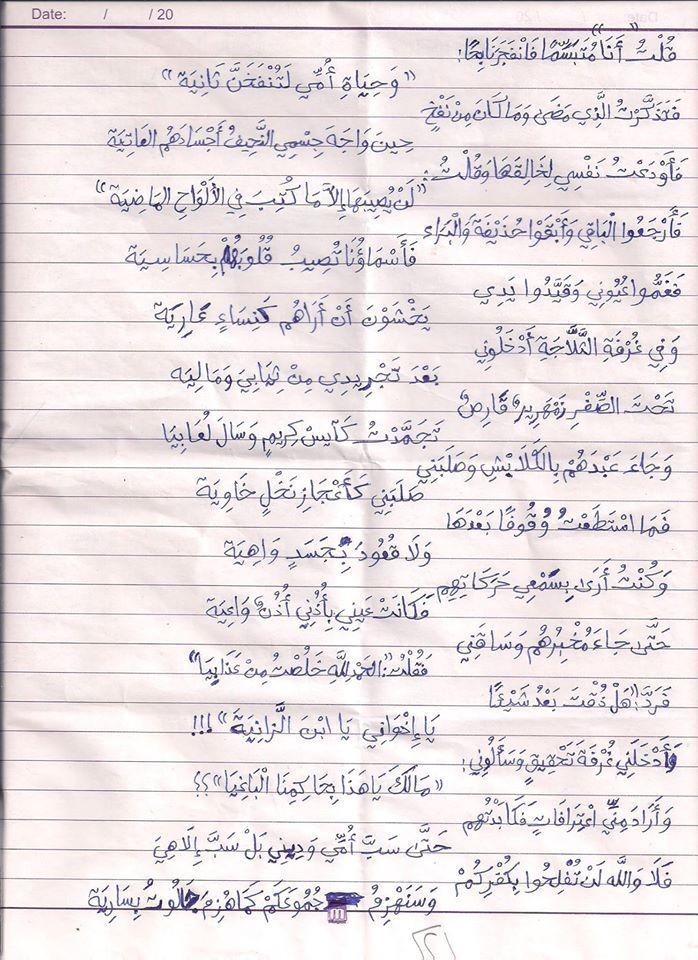 Date: / / 20
قُلْتُ "أَنَا" مُتَبَسِّمًا فَانْفَجَرَ نَابِحًا:
"وَحِيَاةِ أُمِّي لَتُنْفَخَنَّ ثَانِيَة"
فَتَذَكَّرْتُ الَّذِي مَضَى وَمَا كَانَ مِنْ نَفْخٍ
حِينَ وَاجَهَ جِسْمِي النَّحِيفُ أَجْسَادَهُم العَاتِيَة
فَأَوْدَعْتُ نَفْسِي لِخَالِقِهَا وَقُلْتُ:
"لَنْ يُصِيبَهَا إِلاَّ مَا كُتِبَ فِي الأَلْوَاحِ المَاضِيَة"
فَأَرْجَعُوا الْبَاقِي وَأَبْقَوْا حُذَيْفَةَ وَالْبَرَاء
فَأَسْمَاؤُنَا تُصِيبُ قُلُوبَهُمْ بِحَسَاسِيَة
فَغَمُّوا عُيُونِي وَقَيَّدُوا يَدِي
يَخْشَوْنَ أَنْ أَرَاهُم كَنِسَاءٍ عَارِيَة
وَفِي غُرْفَةِ الثَّلَّاجَةِ أَدْخَلُونِي
بَعْدَ تَجْرِيدِي مِنْ ثِيَابِيَ وَمَالِيَه
تَحْتَ الصِّفْرِ زَمْهَرِيرٌ قَارِصٌ
تَجَمَّدْتُ كَآيِسْ كِرِيمٍ وَسَالَ لُعَابِيَا
وَجَاءَ عَبْدَهُمْ بِالْكَلَابْشِ وَصَلَبَنِي
صَلَبَنِي كَأَعْجَازِ نَخْلٍ خَاوِيَة
فَمَا اسْتَطَعْتُ وُقُوفًا بَعْدَهَا
وَلَا قُعُودَ بِجَسَدٍ وَاهِيَة
وَكُنْتُ أَرَى بِسَمْعِي حَرَكَاتِهِم
فَكَانَتْ عَيْنِي بِأُذُنِي أُذُنٌ وَاعِيَة
حَتَّى جَاءَ مُخْبِرُهُم وَسَاقَنِي
فَقُلْتُ: "الحَمْدُ لِلَّهِ خَلُصْتُ مِنْ عَذَابِيَا"
فَرَدَّ: "هَلْ ذُقْتَ بَعْدُ شَيْئًا
يَا إِخْوَانِي يَا ابْنَ الزَّانِيَةَ" !!!
وَأَدْخَلَنِي غُرْفَةَ تَحْقِيقٍ وَسَأَلُونِي:
"مَالَكَ يَا هَذَا بِحَاكِمِنَا الْبَاغِيَا"؟؟
وَأَرَادَ مِنِّي اعْتِرَافَاتٍ فَكَابَدْتُهُم
حَتَّى سَبَّ أُمِّي وَدِينِي بَلْ سَبَّ إِلَاهِيَ
فَلَا وَاللَّهِ لَنْ تُفْلِحُوا بِكُفْرِكُمْ
وَسَنَهْزِمُ جُمُوعَكُمْ كَمَا هُزِمَ جَالُوتُ بِسَارِيَة